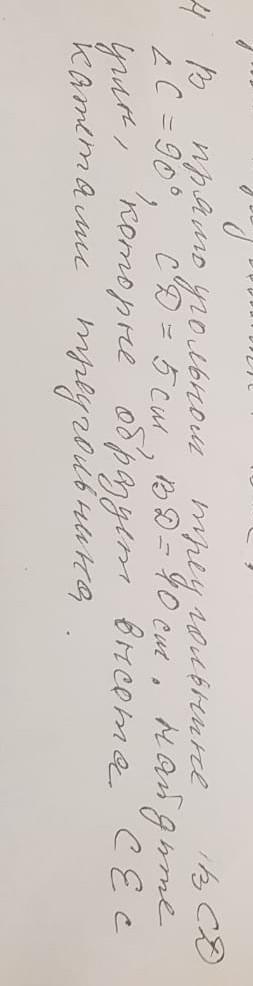 4 В прямоугольном треугольнике ВСД
∠С = 90°, СД = 5 см, ВД = 10 см. Найдите
углы, которые образует высота СЕ с
катетами треугольника.